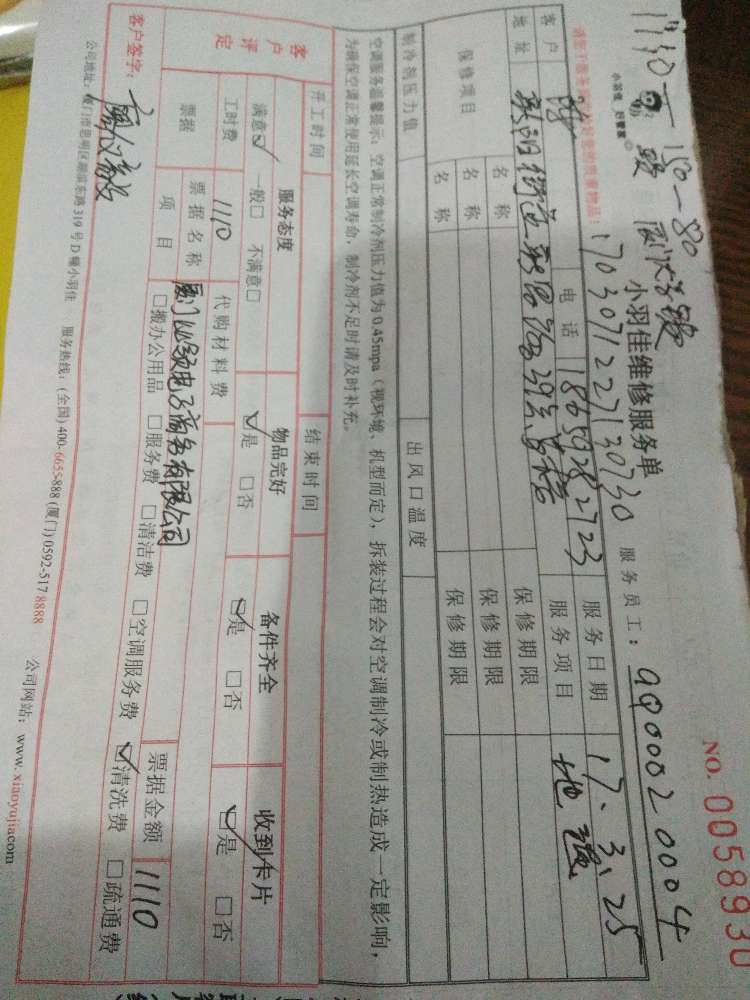 1190-150-80
小羽佳 好管家
小羽佳维修服务单
NO. 0058930
1703071227130730
服务员工: aq00020004
请您于服务前收好您的贵重物品!
客户 陈 电话 18659282723 服务日期 17.3.25
地址 服务项目 地毯
保修项目 名称 保修期限
名称 保修期限
名称 保修期限
制冷剂压力值 出风口温度
空调服务温馨提示: 空调正常制冷剂压力值为 0.45mpa (视环境、机型而定), 拆装过程会对空调制冷或制热造成一定影响,
为确保空调正常使用延长空调寿命, 制冷剂不足时请及时补充。
开工时间 结束时间
客户评定 服务态度 物品完好 备件齐全 收到卡片
满意☑ 一般□ 不满意□ ☑是 □否 ☑是 □否 ☑是 □否
工时费 1110 代购材料费
票据 票据名称 电子商务有限公司 票据金额 1110
项目 □搬办公用品 □服务费 □清洁费 □空调服务费 ☑清洗费 □疏通费
客户签字:
公司地址: 厦门市思明区湖滨东路 319 号 D 幢小羽佳 服务热线: (全国) 400-6655-888 (厦门) 0592-517 8888 公司网站: www.xiaoyujia.com